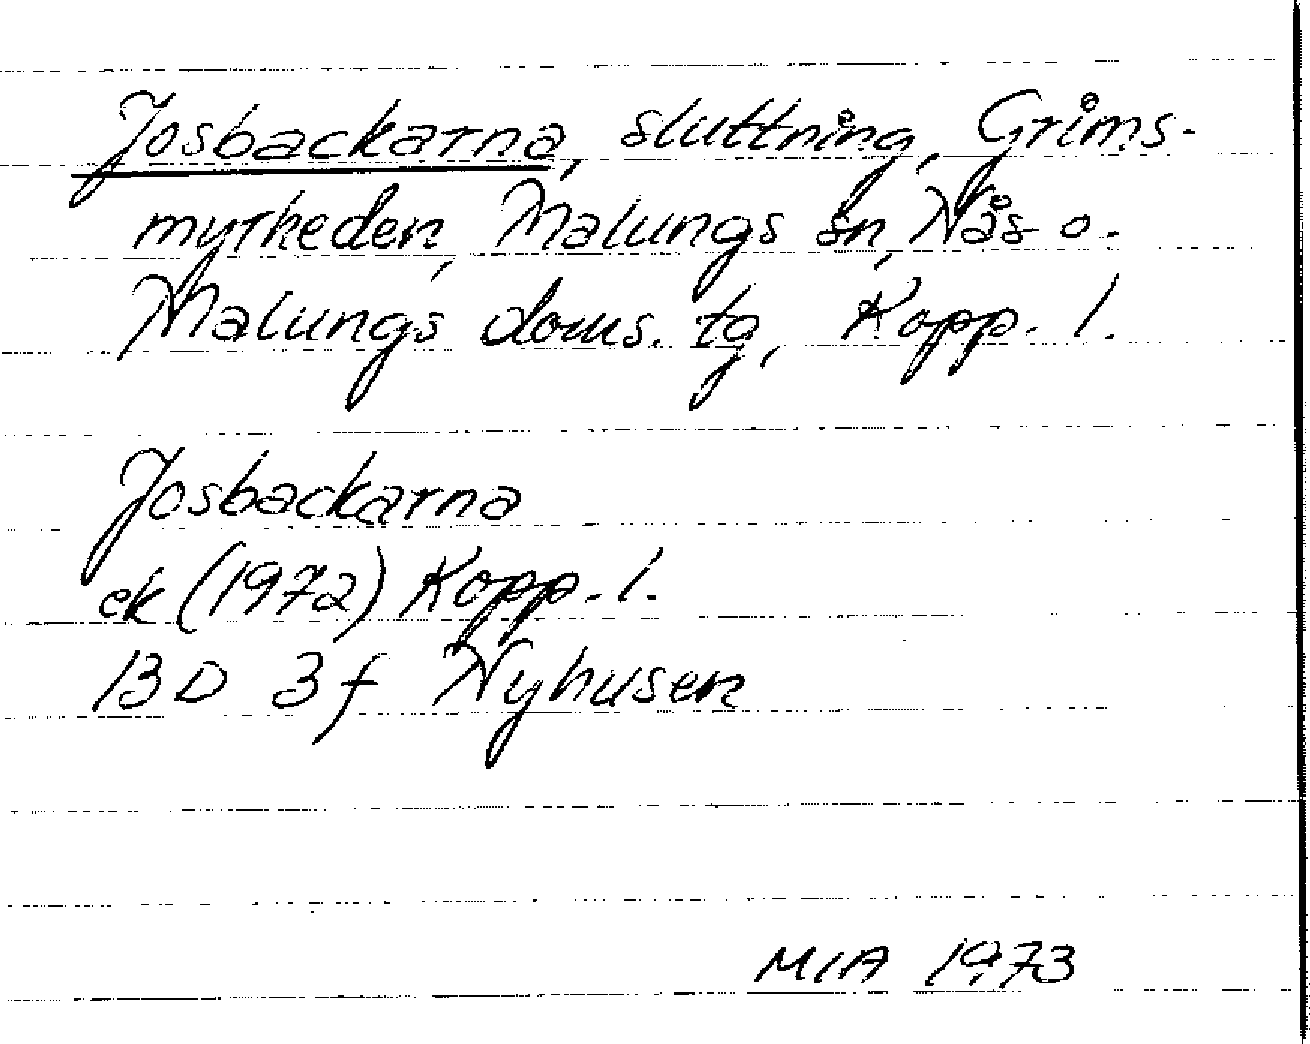 Josbackarna, sluttning, Grims-
myrheden, Malungs sn, Nås o.
Malungs doms. tg, Kopp. l.
Josbackarna
ek (1972) Kopp. l.
13 D 3 f Nyhusen
MIA 1973